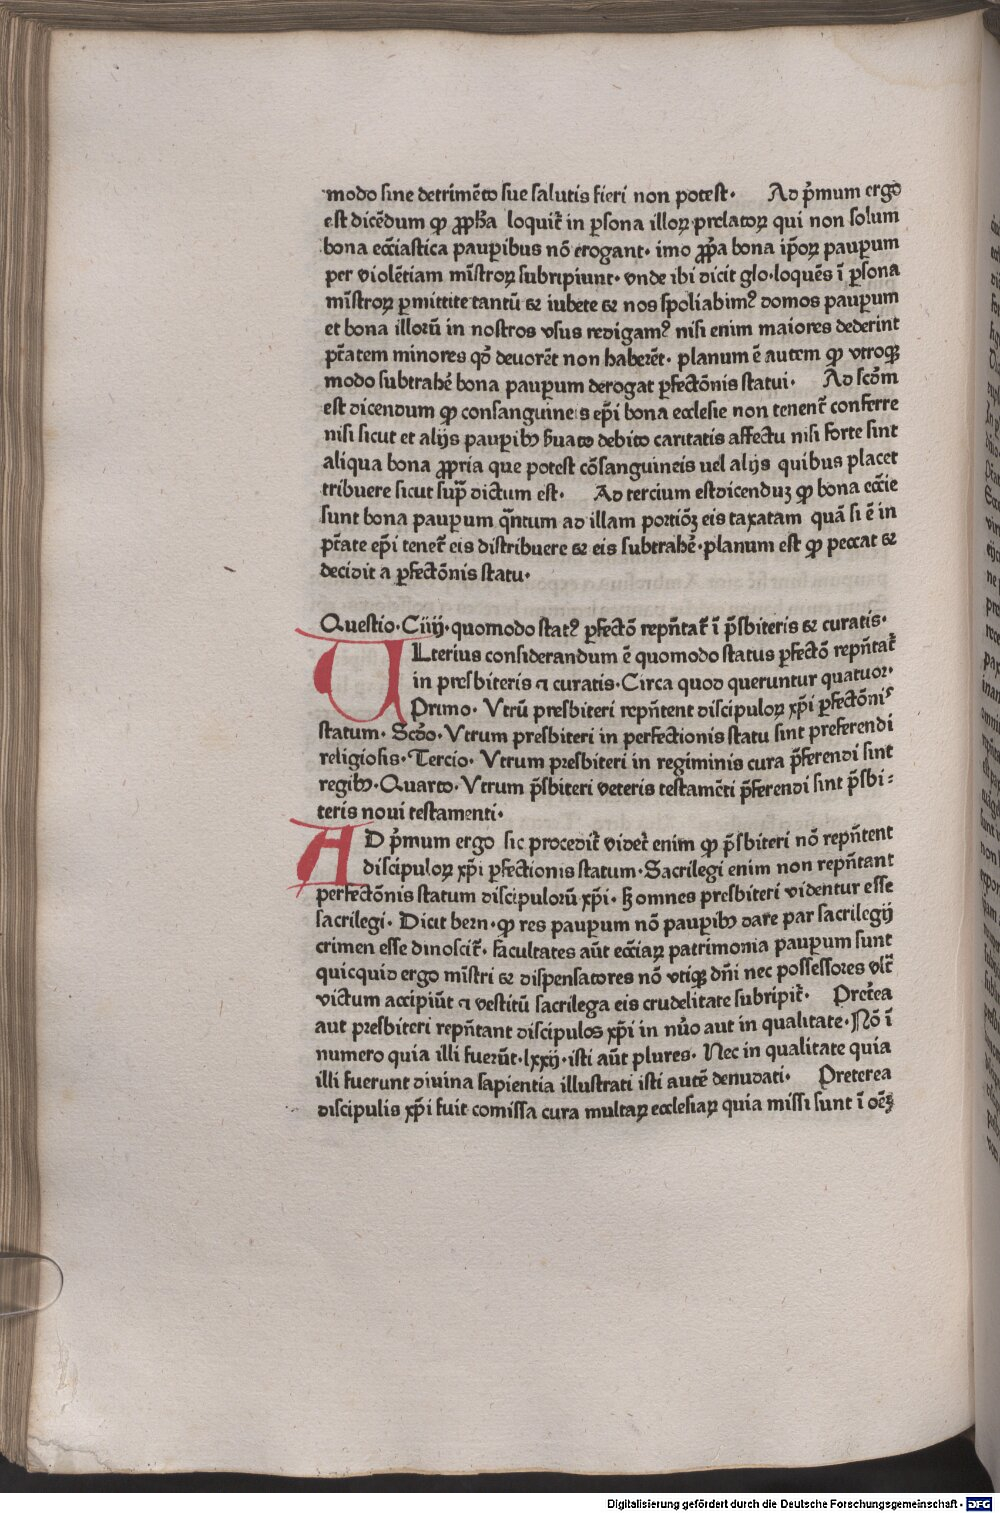 modo sine detrimẽto sue salutis fieri non potest· Ad p̃mum ergo
est dicẽdum ꝙ ꝓph̃a loquit̃ in ꝑsona illoꝝ prelatoꝝ qui non solum
bona ecc̃iastica pauꝑibus nõ erogant· imo ꝓp̃a bona ip̃oꝝ pauꝑum
per violẽtiam mĩstroꝝ subripiunt· vnde ibi dicit glo·loquẽs ĩ ꝑsona
mĩstroꝝ ꝑmittite tantũ & iubete & nos spoliabimꝰ domos pauꝑum
et bona illorũ in nostros vsus redigamꝰ nisi enim maiores dederint
pt̃atem minores qd̃ deuorẽt non haberẽt· planum ẽ autem ꝙ vtroqꝫ
modo subtrahẽ bona pauꝑum derogat ꝑfectõnis statui· Ad scd̃m
est dicendum ꝙ consanguineis ep̃i bona ecclesie non tenent̃ conferre
nisi sicut et alijs pauꝑibꝰ ẜuato debito caritatis affectu nisi forte sint
aliqua bona ꝓpria que potest cõsanguineis uel alijs quibus placet
tribuere sicut sup̃ dictum est· Ad tercium est dicenduꝫ ꝙ bona ecc̃ie
sunt bona pauꝑum qñtum ad illam portiõꝫ eis taxatam quã si ẽ in
pt̃ate ep̃i tenet̃ eis distribuere & eis subtrahẽ·planum est ꝙ peccat &
decidit a ꝑfectõnis statu·
Questio·Ciiij·quomodo statꝰ ꝑfectõ repñtat̃ ĩ p̃sbiteris & curatis·
ULterius considerandum ẽ quomodo status ꝑfectõ repñtat̃
in presbiteris ⁊ curatis·Circa quod queruntur quatuor·
Primo· Vtrũ presbiteri repñtent discipuloꝝ xp̃i ꝑfectõnis
statum· Scd̃o·Vtrum presbiteri in perfectionis statu sint preferendi
religiosis·Tercio· Vtrum presbiteri in regiminis cura p̃ferendi sint
regibꝰ·Quarto·Vtrum p̃sbiteri veteris testamẽti p̃ferendi sint p̃sbi⸗
teris noui testamenti·
AD p̃mum ergo sic procedit̃ videt̃ enim ꝙ p̃sbiteri nõ repñtent
discipuloꝝ xp̃i ꝑfectionis statum·Sacrilegi enim non repñtant
perfectõnis statum discipulorũ xp̃i· ꝥ omnes presbiteri videntur esse
sacrilegi· Dicit bern·ꝙ res pauꝑum nõ pauꝑibꝰ dare par sacrilegij
crimen esse dinoscit̃· facultates aũt ecc̃iaꝝ patrimonia pauꝑum sunt
quicquid ergo mĩstri & dispensatores nõ vtiqꝫ dñi nec possessores vlt̃
victum accipiũt ⁊ vestitũ sacrilega eis crudelitate subripit̃· Pret̃ea
aut presbiteri repñtant discipulos xp̃i in nũo aut in qualitate·Nõ ĩ
numero quia illi fuerũt·lxxij·isti aũt plures· Nec in qualitate quia
illi fuerunt diuina sapientia illustrati isti autẽ denudati· Preterea
discipulis xp̃i fuit comissa cura multaꝝ ecclesiaꝝ quia missi sunt ĩ oẽꝫ
Digitalisierung gefördert durch die Deutsche Forschungsgemeinschaft - DFG